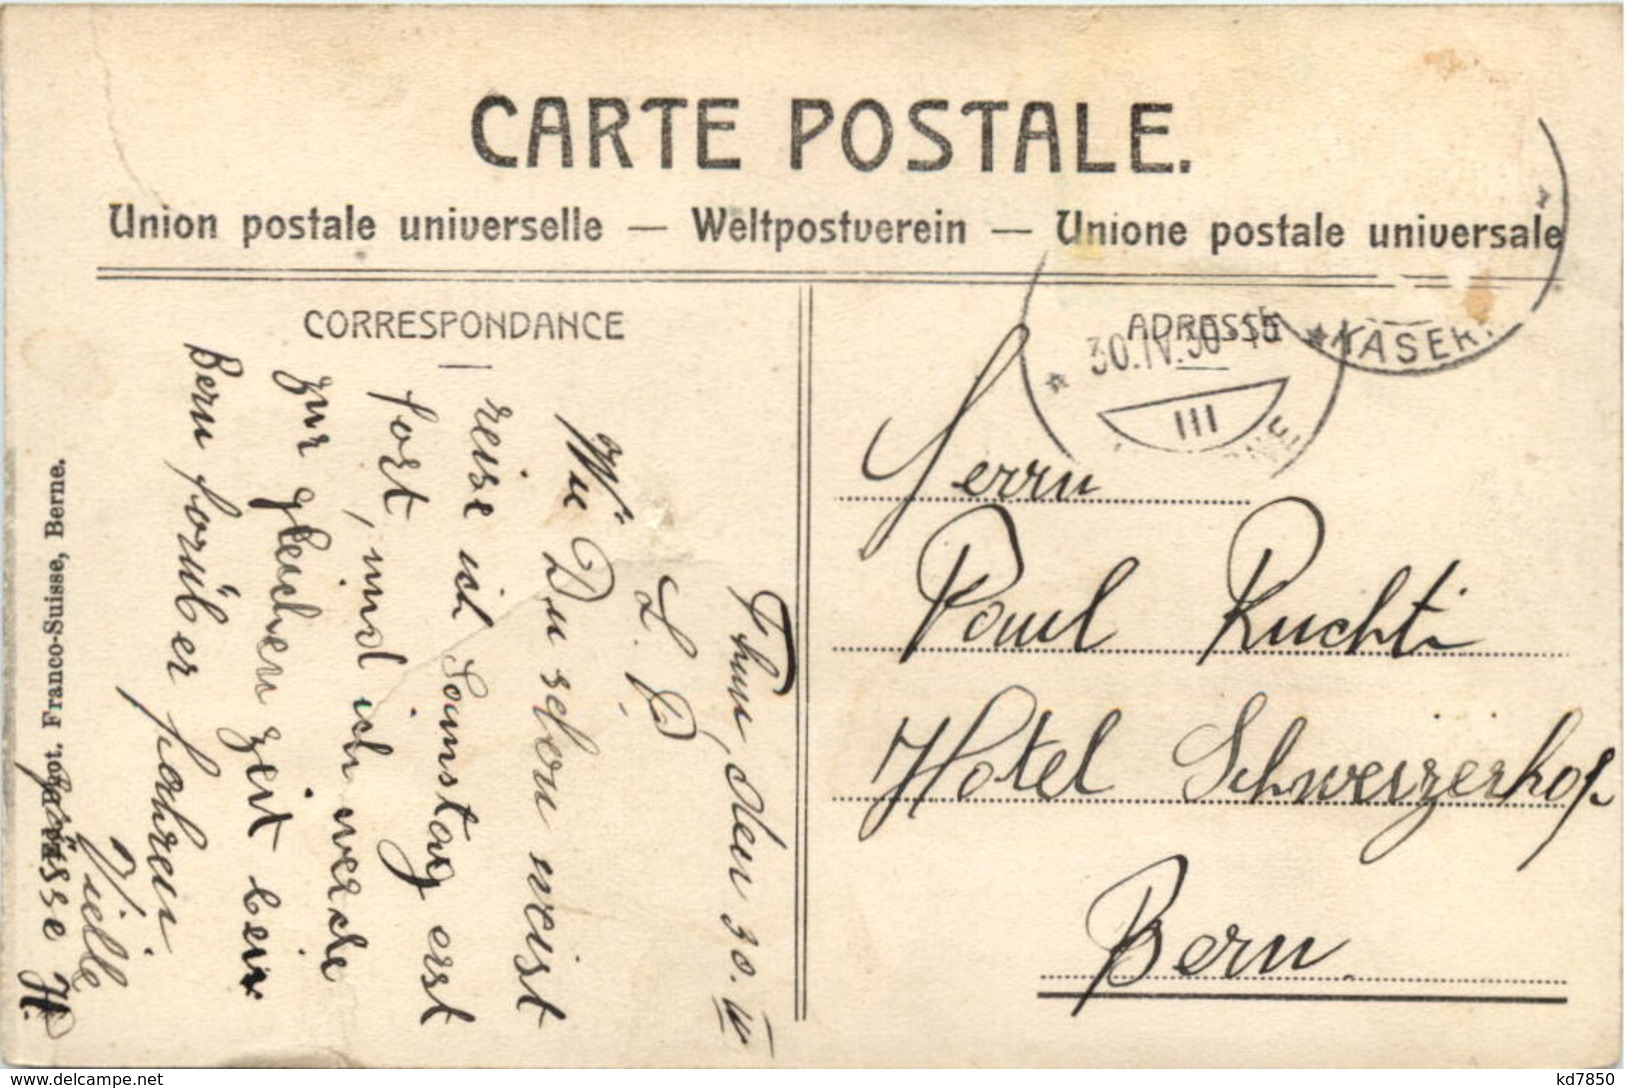 CARTE POSTALE.
Union postale universelle — Weltpostverein — Unione postale universale
CORRESPONDANCE
ADRESSE
Thun, den 30. IV
L. P.
Wie Du schon weist
reise ich Samstag erst
fort, und ich werde
zur gleichen zeit bei
Bern forüber fahren
Vielle
Grüsse H.
Herrn
Paul Ruchti
Hotel Schweizerhof
Bern.
30.IV.
III
KASER
Phot. Franco-Suisse, Berne.
kd7850